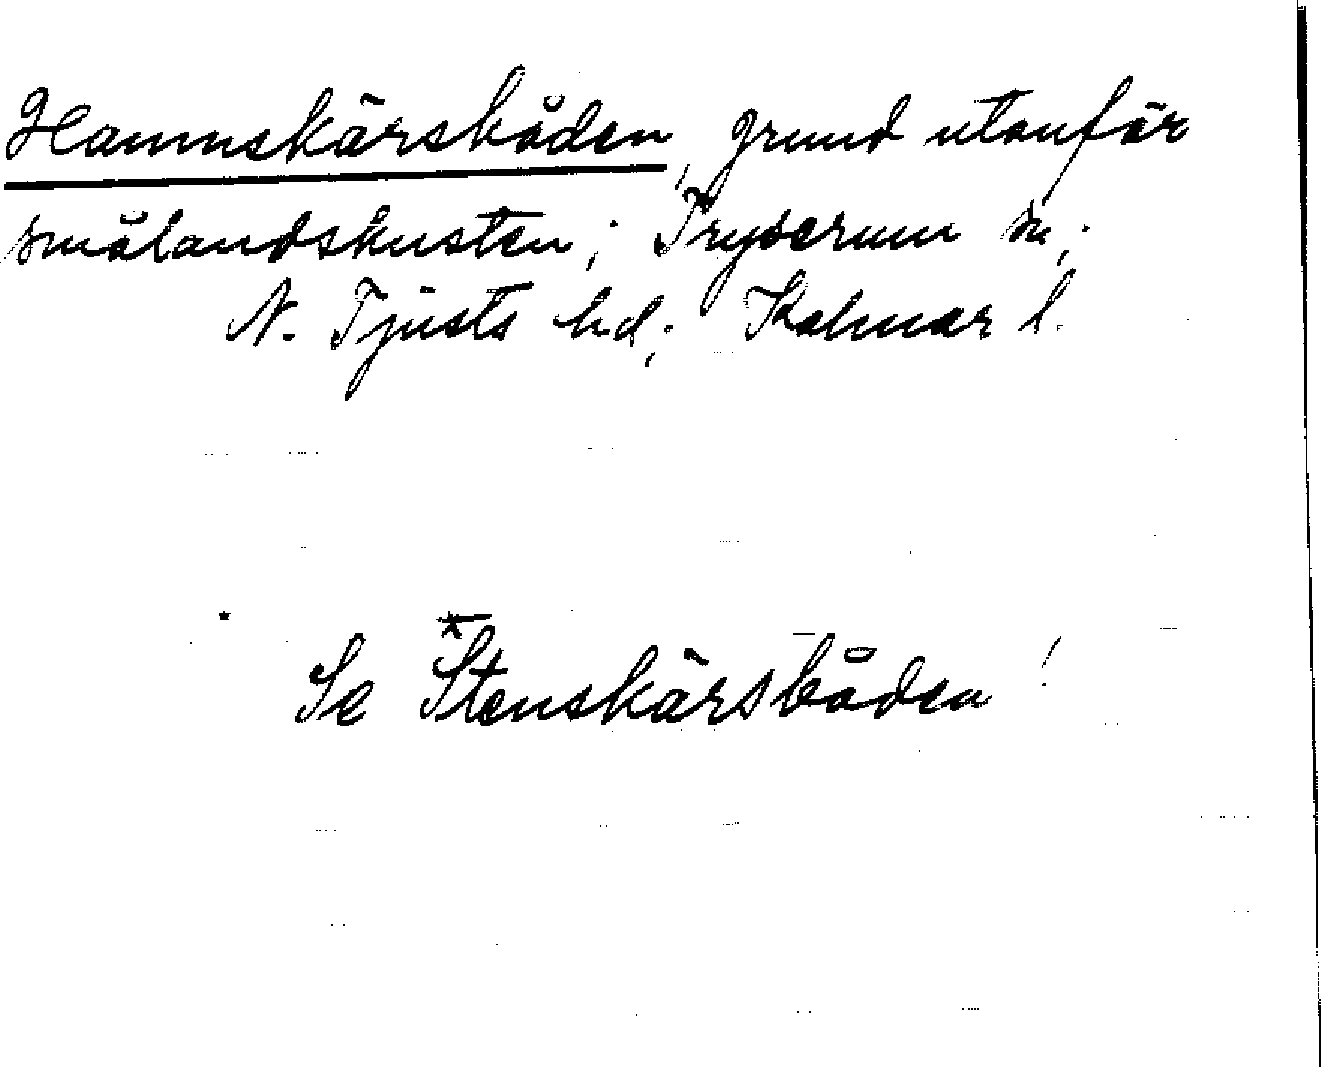 Hamnskärsbåden, grund utanför
smålandskusten; Tryserum sn;
N. Tjusts hd; Kalmar l.
Se Stenskärsbåden!